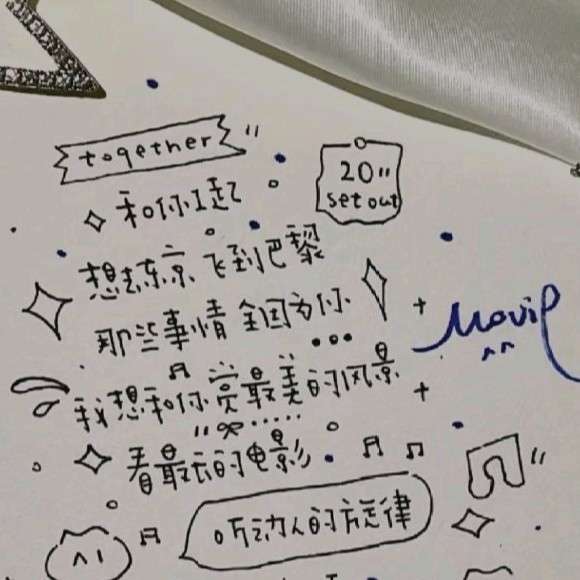 together
20"
set out
和你1起
想去东京 飞到巴黎
那些事情 全因为你
Movie
我想和你赏最美的风景
看最长的电影
听动人的旋律